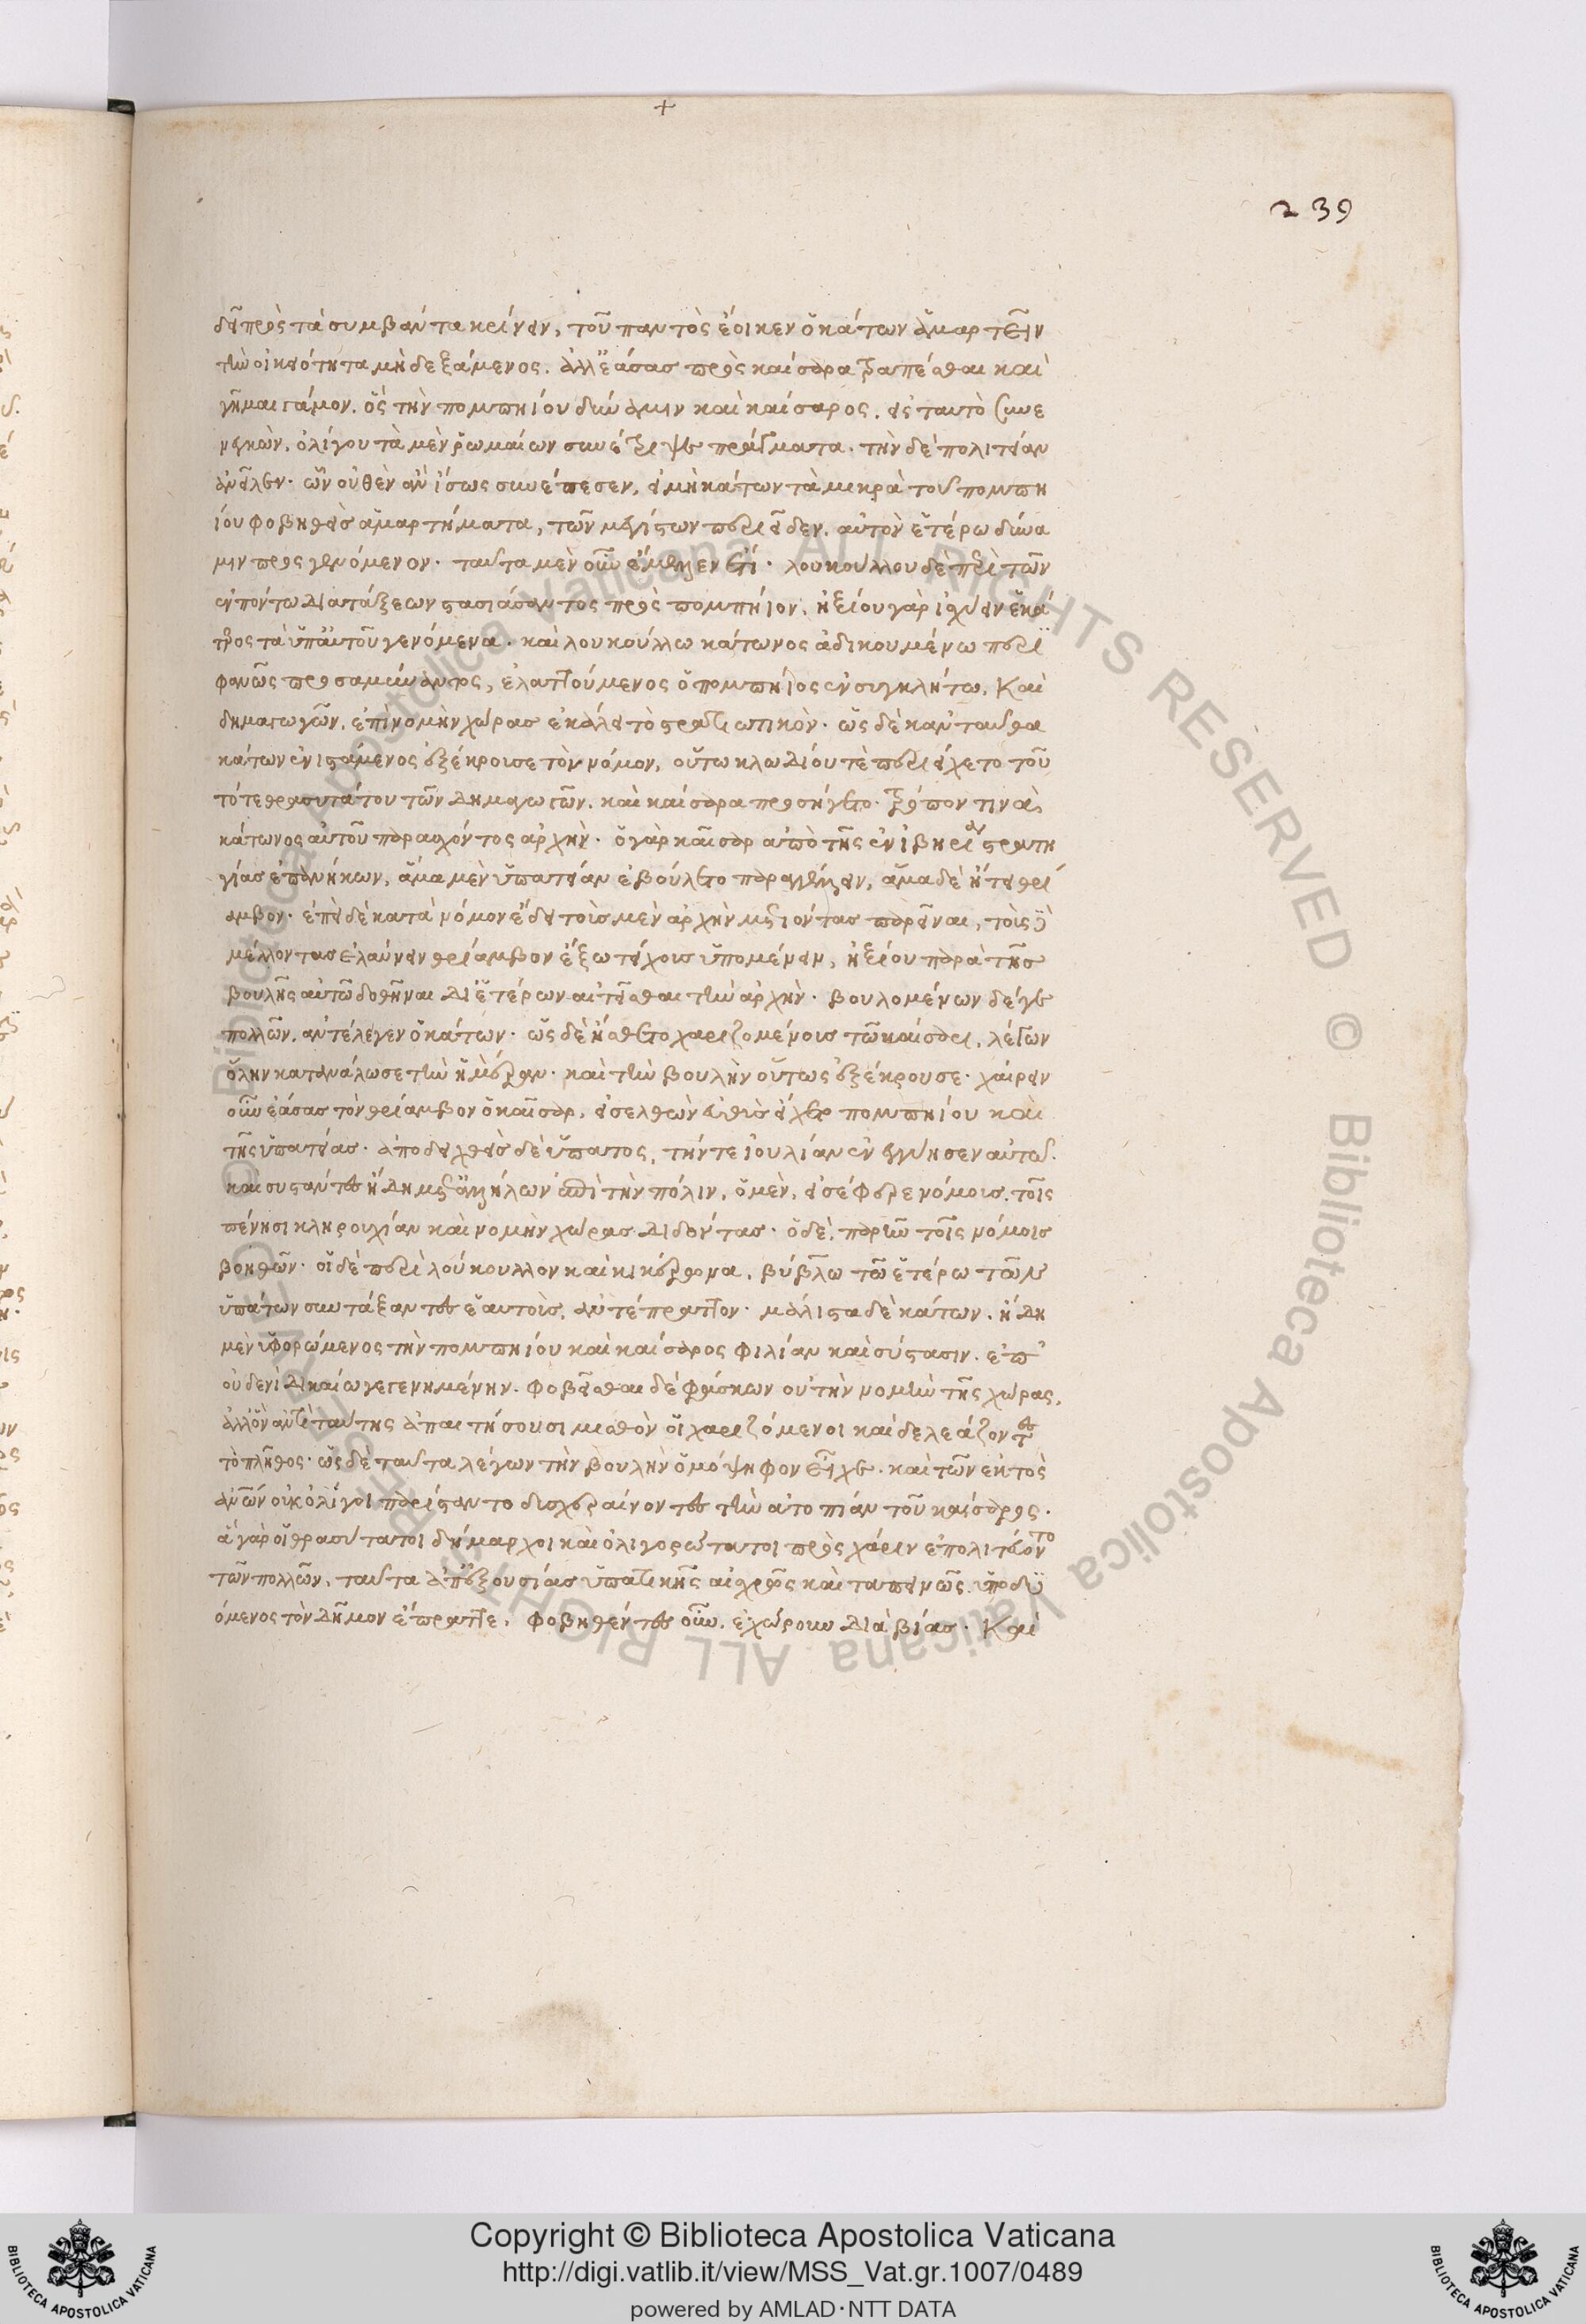 239
δεῖ πρὸς τὰ συμβάντα κρίνειν, τοῦ παντὸς ἔοικεν ὁ κάτων ἁμαρτεῖν
τὴν οἰκειότητα μὴ δεξάμενος. ἀλλ' ἐάσας πρὸς καίσαρα τραπέσθαι καὶ
γῆμαι γάμον. ὃς τὴν πομπηίου δύναμιν καὶ καίσαρος. εἰς ταυτὸ συνε
νεγκὼν, ὀλίγου τὰ μὲν ῥωμαίων συνέτριψε πράγματα. τὴν δὲ πολιτείαν
ἀνεῖλεν. ὧν οὐθὲν ἂν ἴσως συνέπεσεν, εἰ μὴ κάτων τὰ μικρὰ τοῦ πομπη
ίου φοβηθεὶς ἁμαρτήματα, τῶν μεγίστων περιεῖδεν. αὐτὸν ἑτέρω δύνα
μιν προσγενόμενον. ταῦτα μὲν οὖν ἔμελλεν ἔτι. λουκούλλου δὲ περὶ τῶν
ἐν πόντω διατάξεων στασιάσαντος πρὸς πομπήιον. ἠξίου γὰρ ἰσχύειν ἑκά
τερος τὰ ὑπ' αὐτοῦ γενόμενα. καὶ λουκούλλω κάτωνος ἀδικουμένω περι
φανῶς προσαμύναντος, ἐλαττούμενος ὁ πομπήιος ἐν συγκλήτω. καὶ
δημαγωγῶν, ἐπὶ νομὴν χώρας ἐκάλει τὸ στρατιωτικὸν. ὡς δὲ κἀνταῦθα
κάτων ἐνιστάμενος ἐξέκρουσε τὸν νόμον, οὕτω κλωδίου τὲ περιείχετο τοῦ
τότε θρασυτάτου τῶν δημαγωγῶν. καὶ καίσαρα προσήγετο. τρόπον τινὰ,
κάτωνος αὐτοῦ παρασχόντος ἀρχὴν. ὁ γὰρ καῖσαρ ἀπὸ τῆς ἐν ἰβηρίαν στρατη
γίας ἐπανήκων, ἅμα μὲν ὑπατείαν ἐβούλετο παραγγέλλειν, ἅμα δὲ ἤτει θρί
αμβον. ἐπεὶ δὲ κατὰ νόμον ἔδει τοὺς μὲν ἀρχὴν μετιόντας παρεῖναι, τοὺς δὲ
μέλλοντας ἐλαύνειν θρίαμβον ἔξω τείχους ὑπομένειν, ἠξίου παρὰ τῆς
βουλῆς αὐτῶ δοθῆναι δι' ἑτέρων αἰτεῖσθαι τὴν ἀρχὴν. βουλομένων δέ γε
πολλῶν. ἀντέλεγεν ὁ κάτων. ὡς δὲ ἤσθετο χαριζομένους τῶ καίσαρι, λέγων
ὅλην κατανάλωσε τὴν ἡμέραν. καὶ τὴν βουλὴν οὕτως ἐξέκρουσε. χαίρειν
οὖν ἐάσας τὸν θρίαμβον ὁ καῖσαρ, εἰσελθὼν εὐθὺς εἴχετο πομπηίου καὶ
τῆς ὑπατείας. ἀποδειχθεὶς δὲ ὕπατος, τήν τε ἰουλίαν ἐνεγγύησεν αὐτῶ.
καὶ συστάντες ἤδη μετ' ἀλλήλων ἐπὶ τὴν πόλιν, ὁ μὲν, εἰσέφερε νόμους. τοῖς
πένησι κληρουχίαν καὶ νομὴν χώρας διδόντας. ὁ δὲ, παρῆν τοῖς νόμοις
βοηθῶν. οἱ δὲ περὶ λούκουλλον καὶ κικέρωνα, βύβλω τῶ ἑτέρω τῶν
ὑπάτων συντάξαντες ἑαυτοὺς, ἀντέπραττον. μάλιστα δὲ κάτων. ἤδη
μὲν ὑφορώμενος τὴν πομπηίου καὶ καίσαρος φιλίαν καὶ σύστασιν. ἐπ'
οὐδενὶ δικαίω γεγενημένην. φοβεῖσθαι δὲ φάσκων οὐ τὴν νομὴν τῆς χώρας,
ἀλλ' ὃν ἀντὶ ταύτης ἀπαιτήσουσι μισθὸν οἱ χαριζόμενοι καὶ δελεάζοντες
τὸ πλῆθος. ὡς δὲ ταῦτα λέγων τὴν βουλὴν ὁμόψηφον εἶχε. καὶ τῶν ἐκτὸς
ἀνῶν οὐκ ὀλίγοι παρίσταντο δυσχεραίνοντες τὴν ἀτοπίαν τοῦ καίσαρος.
ἃ γὰρ οἱ θρασύτατοι δήμαρχοι καὶ ὀλιγορώτατοι πρὸς χάριν ἐπολιτεύοντο
τῶν πολλῶν, ταῦτα ἀπ' ἐξουσίας ὑπατικῆς αἰσχρῶς καὶ ταπεινῶς ὑποδυ
όμενος τὸν δῆμον ἔπραττε. φοβηθέντες οὖν, ἐχώρουν διὰ βίας. καὶ
Copyright © Biblioteca Apostolica Vaticana
http://digi.vatlib.it/view/MSS_Vat.gr.1007/0489
powered by AMLAD·NTT DATA